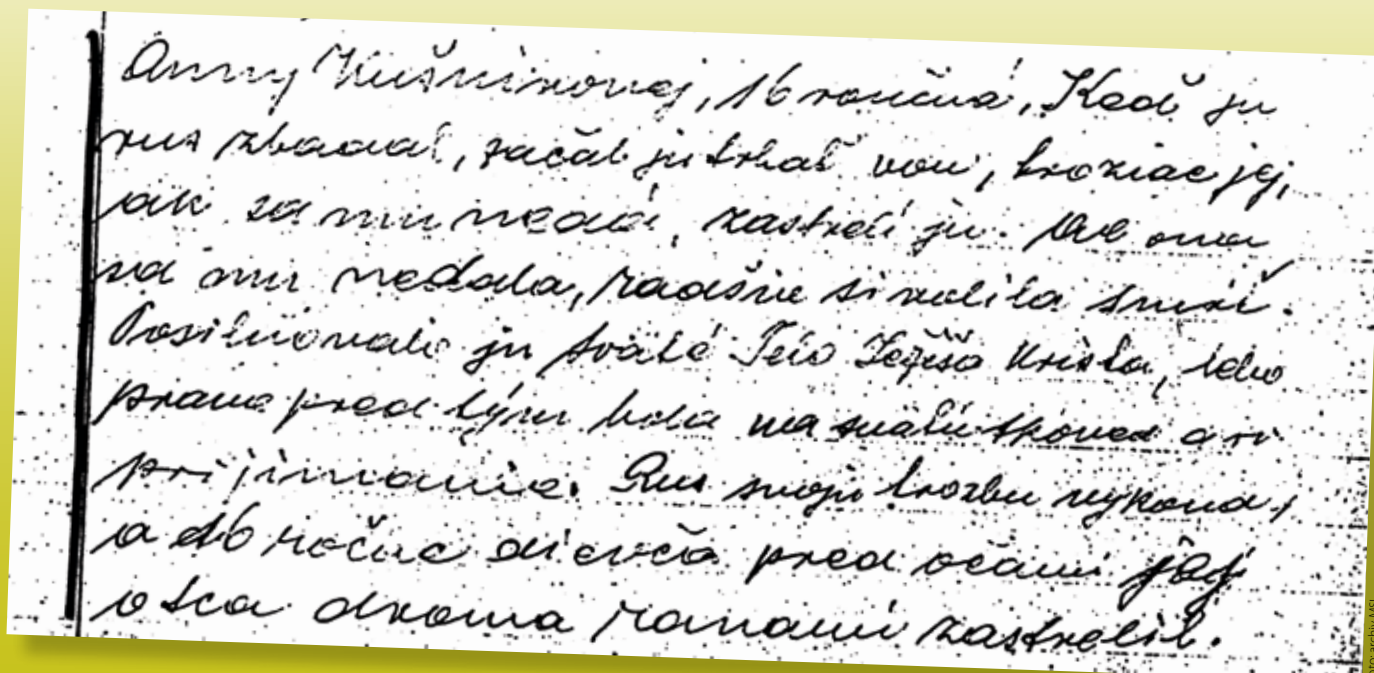 Anny Kušnírovej, 16 ročná. Keď ju
rus zbadal, začal ju trhať von, hroziac jej,
ak sa mu nedá, zastrelí ju. Ale ona
sa mu nedala, radšie si volila smrť.
Posilňovalo ju sväté Telo Ježiša Krista, lebo
práve pred tým bola na svätej spovedi a sv.
prijímanie. Rus svoju hrozbu vykonal,
a 16 ročné dievča pred očami jej
otca dvoma ranami zastrelil.
Foto: archív MSL